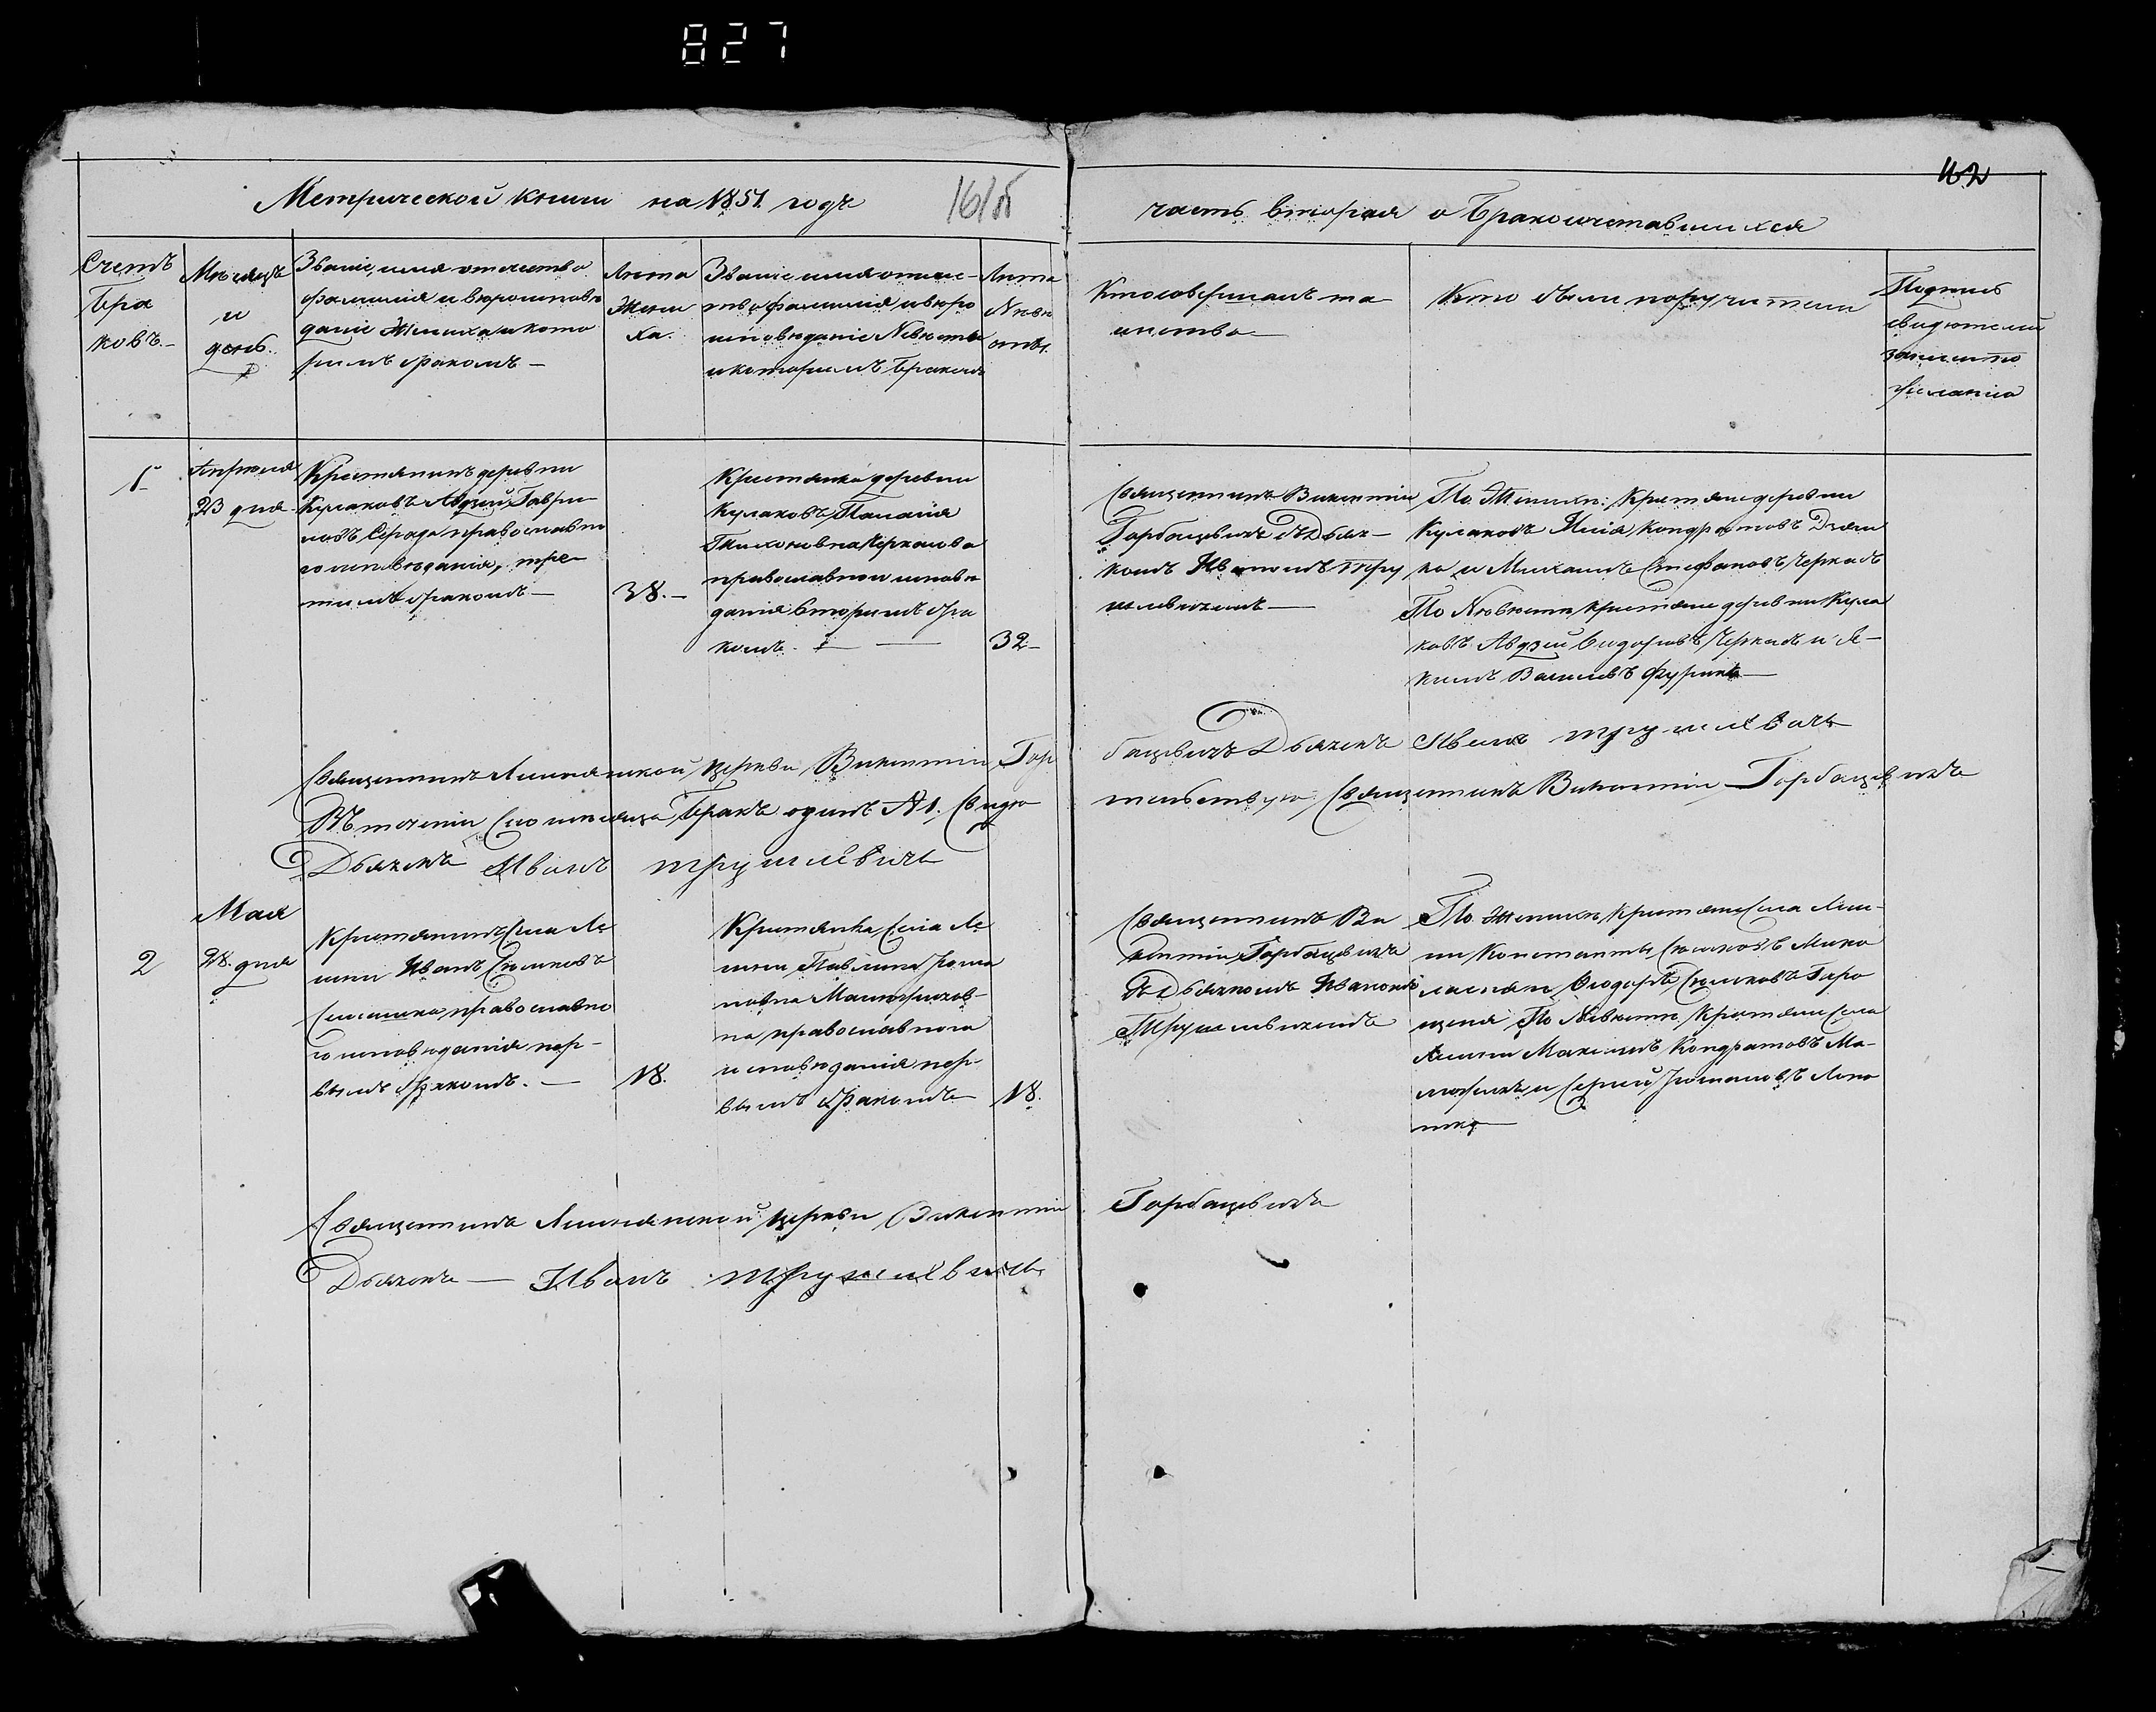 827
42
Метрической книги на 1851 годъ 161об
часть вторая о Бракосочетавшихся
Счетъ
Бра
ковъ.
Мѣсяцъ
и
день.
Званіе, имя отчество
фамилія и вѣроисповѣ
даніе Жениха и кото
римъ бракомъ —
Лѣта
Жени
ха.
Званіе имя отче-
тво фамилія и вѣро
исповѣданіе Невѣсты
и которимъ Бракомъ
Лѣта
Невѣ
сты.
Кто совершалъ та
инство
Кто были поручители
Подпись
свидѣтелей
записи по
желанію
1
Апрѣля
23 дня.
Крестянинъ деревни
Кулаковъ Авдзей Гаври
ловъ Середа православно
го исповѣданія, тре
тимъ бракомъ —
38. —
Крестянка деревни
Кулаковъ Палагія
Тихоновна Черкасова
православного исповѣ
данія вторимъ бра
комъ. —
32
Священникъ Викентій
Горбацевичъ съ Дьяч-
комъ Иваномъ Тру
шлевичемъ —
По Женихѣ: Крестяне деревни
Кулаковъ Илія Кондратовъ
ко и Михаилъ Стефановъ Черкасъ
По Невѣстѣ крестяне деревни Кула
ковъ Авдзей Ѳиодоровъ Черкасъ и Я-
кимъ Василевъ
Священникъ церкви Викентій Гор
бацевичъ Дьячекъ Иванъ Трушлевичъ
Въ теченіи сего мѣсяца Бракъ одинъ №1. Свидѣ
тельствую Священникъ Викентій Горбацевичъ
Дьячекъ Иванъ Трушлевичъ
2
Мая
28. дня
Крестянинъ Села Ли
шни Иванъ
православно
го исповѣданія пер-
вымъ бракомъ. —
18.
Крестянка Села Ли
шни Павлина Рома
новна
на православного
исповѣданія пер-
вымъ бракомъ
18.
Священникъ Ви
кентій Горбацевичъ
съ Дьячкомъ Иваномъ
Трушлевичемъ
По Женихѣ Крестяне Села Лиш-
ни Константы
Ѳиодоръ
По Невѣстѣ Крестяне Села
Лишни Максимъ Кондратовъ Ма-
и Сергій Романовъ
Священникъ церкви Викентій
Горбацевичъ
Дьячекъ — Иванъ Трушлевичъ